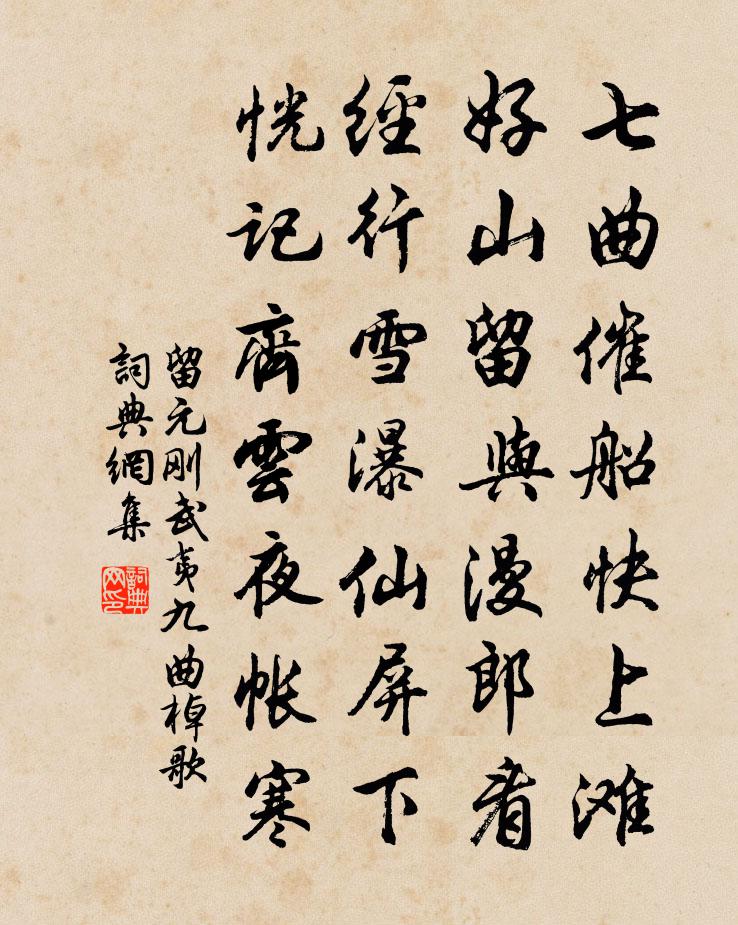 七曲催船快上滩
好山留與漫郎看
經行雪瀑仙屏下
恍記齊雲夜帐寒
留元刚武夷九曲棹歌
詞典網集
詞典網印